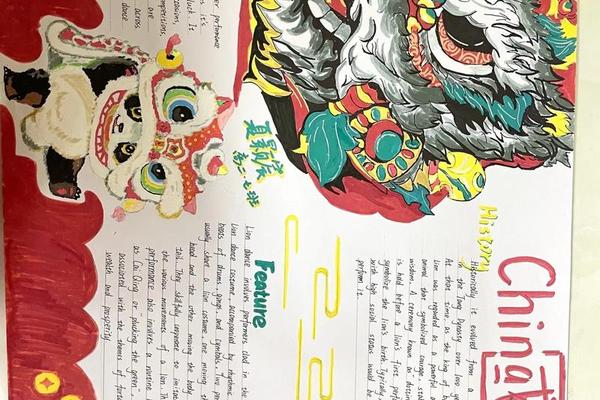 China
History
Historically it evolved from a
the Tang Dynasty over two
At that time, as the king of
lion was regarded as a powerful
animal that symbolized courage,
wisdom. A ceremony known as
is held before a lion's first
symbolize the lion's birth. Typically,
with high social status would be
perform it.
高二七班
Feature
Lion dance involves performers clad in the
Lion dance costume, accompanied by rhythmic
beats of drums, gongs and cymbals. Two
usually share a lion costume, one moving
head and the other moving the body
tail. They skilfully cooperate to imitate
the various movements of a lion.
performance also involves a routine
as Cai Qing or "plucking the green",
associated with the themes of
wealth and prosperity.
performance
it's
luck. It
occasions,
are
competitions,
across
dance